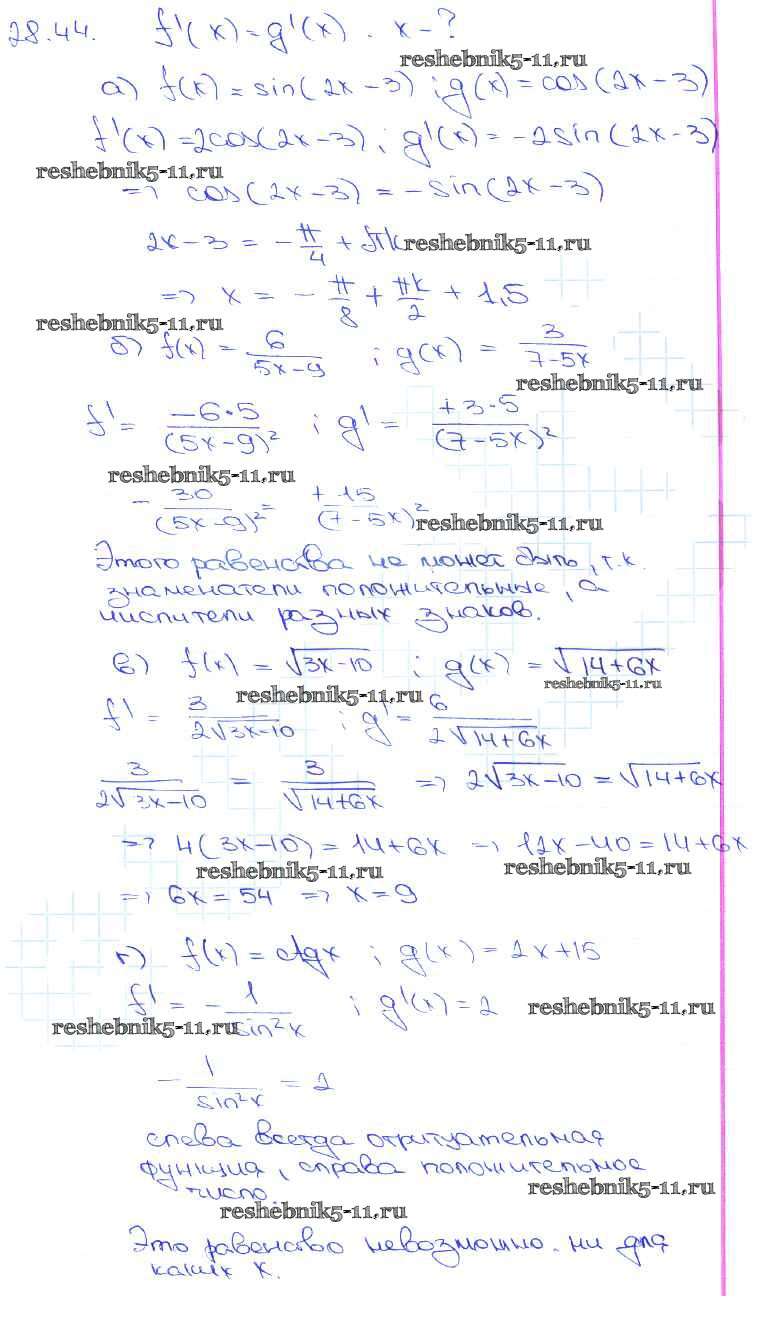 28.44. f'(x) = g'(x). x - ?
reshebnik5-11.ru
а) f(x) = sin(2x - 3); g(x) = cos(2x - 3)
f'(x) = 2cos(2x - 3); g'(x) = -2sin(2x - 3)
reshebnik5-11.ru
=> cos(2x - 3) = -sin(2x - 3)
2x - 3 = -π/4 + πk reshebnik5-11.ru
=> x = -π/8 + πk/2 + 1,5
reshebnik5-11.ru
б) f(x) = 6/(5x - 9) ; g(x) = 3/(7 - 5x)
reshebnik5-11.ru
f' = -6·5/(5x - 9)² ; g' = +3·5/(7 - 5x)²
reshebnik5-11.ru
- 30/(5x - 9)² = +15/(7 - 5x)² reshebnik5-11.ru
Этого равенства не может быть, т.к.
знаменатели положительные, а
числители разных знаков.
в) f(x) = √(3x - 10) ; g(x) = √(14 + 6x)
reshebnik5-11.ru reshebnik5-11.ru
f' = 3/(2√(3x - 10)) ; g' = 6/(2√(14 + 6x))
3/(2√(3x - 10)) = 3/√(14 + 6x) => 2√(3x - 10) = √(14 + 6x)
=> 4(3x - 10) = 14 + 6x => 12x - 40 = 14 + 6x
reshebnik5-11.ru reshebnik5-11.ru
=> 6x = 54 => x = 9
г) f(x) = ctgx ; g(x) = 2x + 15
f' = -1/sin²x ; g'(x) = 2 reshebnik5-11.ru
reshebnik5-11.ru
- 1/sin²x = 2
слева всегда отрицательная
функция, справа положительное
число. reshebnik5-11.ru
reshebnik5-11.ru
Это равенство невозможно ни для
каких x.